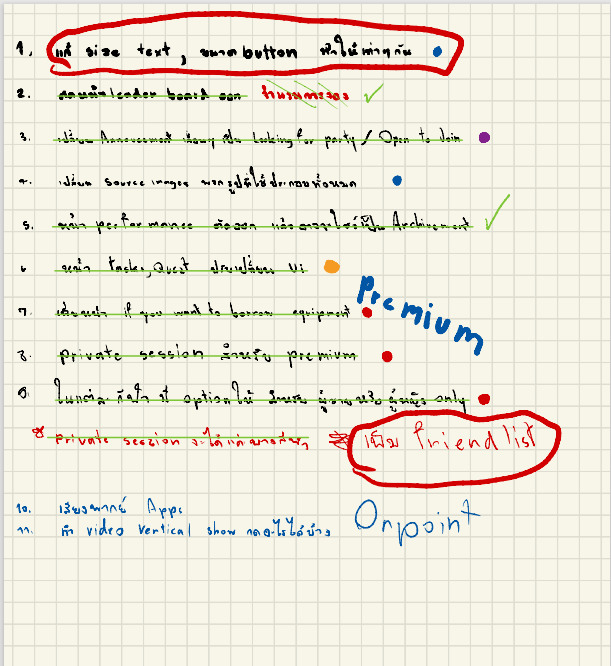 1. แก้ size text, ขนาด button ทำให้เท่าๆกัน
2. leader board ออก จำนวนการจอง
3. เปลี่ยน Annoucement เป็น Looking for party / Open to Join
4. เปลี่ยน source images พวกรูปที่ใช้ประกอบทั้งหมด
5. หน้า performance ตัดออก แล้วอาจใส่เป็น Archivement
6. หน้า Tasks, Quest ปรับเปลี่ยน Ui
7. if you want to borrow equipment
premium
8. private session สำหรับ premium
9. ในแต่ละกีฬา มี option ให้ สำหรับ ผู้ชายหรือ ผู้หญิง only
* private session จะได้แค่บางกีฬา
เพิ่ม friend list
10. เสียงพากย์ Apps
11. ทำ video vertical show กดอะไรได้บ้าง
Onpoint